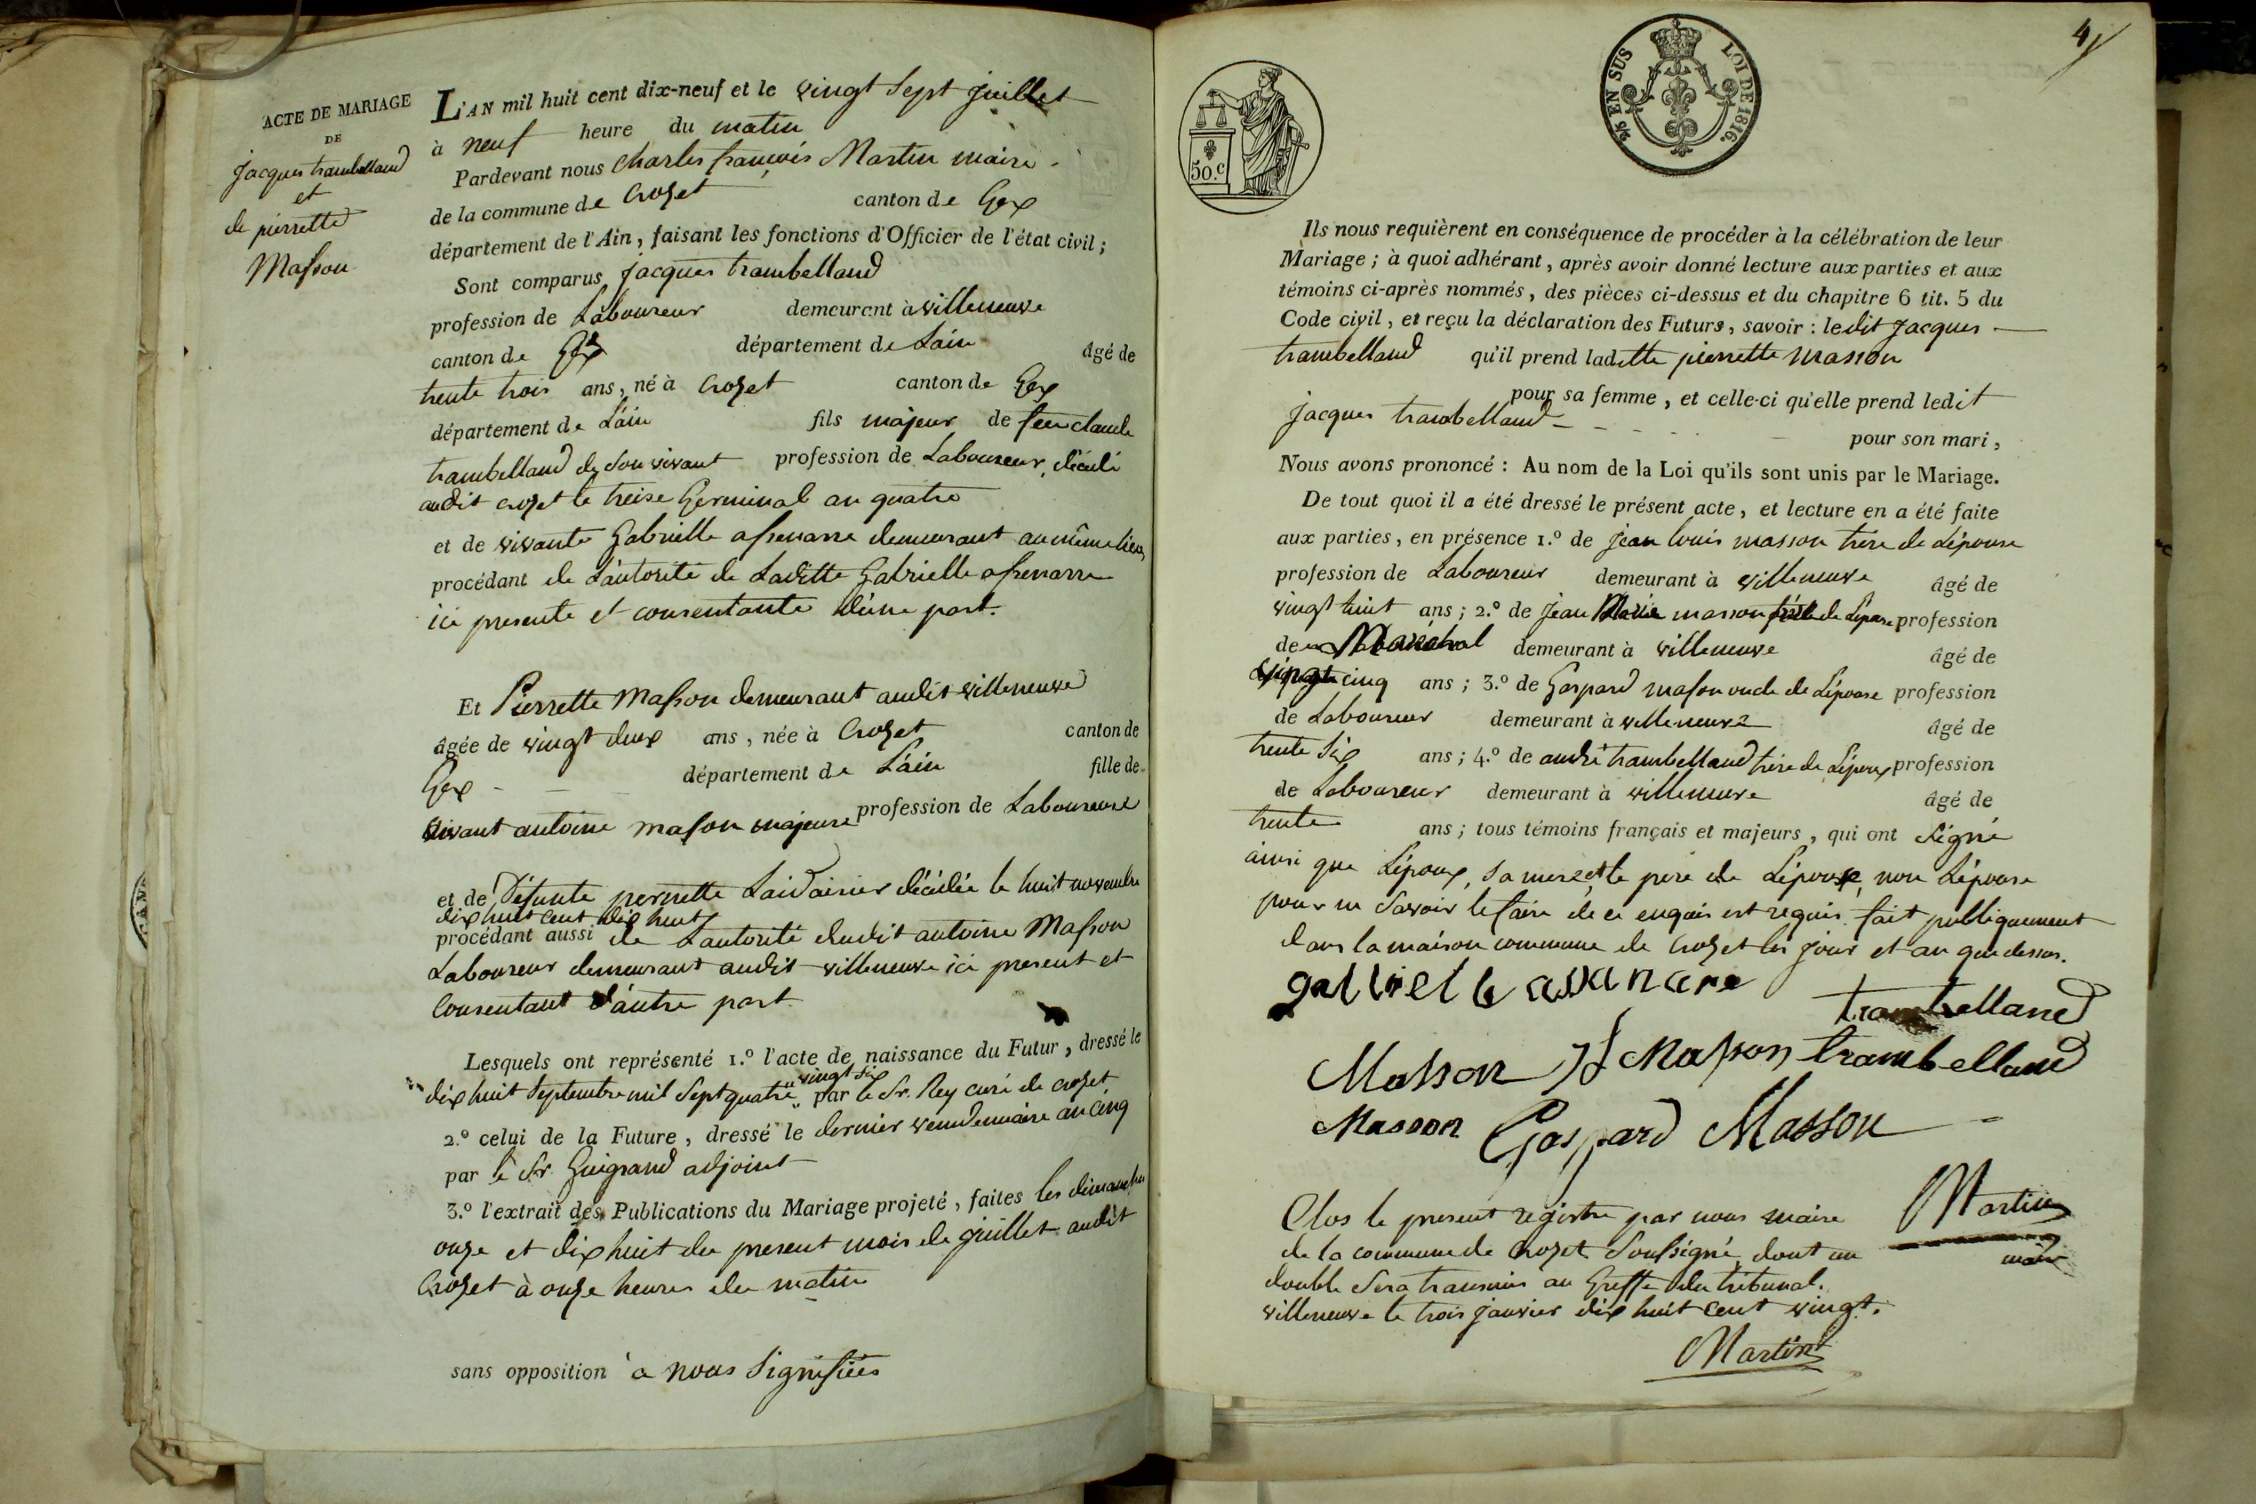 ACTE DE MARIAGE
DE
jacques trambelland
et
de pierrette
Masson
L'AN mil huit cent dix-neuf et le vingt sept juillet
à neuf heure du matin
Pardevant nous charles françois Martin maire
de la commune de Crozet canton de Gex
département de l'Ain, faisant les fonctions d'Officier de l'état civil;
Sont comparus jacques trambelland
profession de Laboureur demeurant à villeneuve
canton de Gex département de L'ain âgé de
trente trois ans, né à Crozet canton de Gex
département de L'ain fils majeur de feu claude
trambelland de son vivant profession de Laboureur, décédé
audit crozet le treize Germinal an quatre
et de vivante Gabrielle assenarre demeurant au même lieu,
procédant de L'autorité de Laditte Gabrielle assenarre
ici presente et consentante d'une part.
Et Pierrette Masson demeurant audit villeneuve
âgée de vingt deux ans, née à Crozet canton de
Gex département de L'ain fille de
vivant antoine masson majeure profession de Laboureuse
et de Défunte pernette décédée le huit novembre
dix huit cent dix huit
procédant aussi de L'autorité dudit antoine Masson
Laboureur demeurant audit villeneuve ici present et
Consentant d'autre part.
Lesquels ont représenté 1.º l'acte de naissance du Futur, dressé le
vingt six
dix huit Septembre mil Sept quatre par le Sr. Rey curé de crozet
2.º celui de la Future, dressé le dernier vendemiaire an cinq
par le Sr. Guigrand adjoint
3.º l'extrait des Publications du Mariage projeté, faites les dimanches
onze et dix huit du present mois de juillet audit
Crozet à onze heures du matin
sans opposition à nous Signifiées
4
50.C
5/5 EN SUS LOI DE 1816.
Ils nous requièrent en conséquence de procéder à la célébration de leur
Mariage; à quoi adhérant, après avoir donné lecture aux parties et aux
témoins ci-après nommés, des pièces ci-dessus et du chapitre 6 tit. 5 du
Code civil, et reçu la déclaration des Futurs, savoir : ledit jacques
trambelland qu'il prend laditte pierrette masson
pour sa femme, et celle-ci qu'elle prend ledit
jacques trambelland
pour son mari,
Nous avons prononcé : Au nom de la Loi qu'ils sont unis par le Mariage.
De tout quoi il a été dressé le présent acte, et lecture en a été faite
aux parties, en présence 1.º de jean louis masson frère de L'épouse
profession de Laboureur demeurant à villeneuve âgé de
vingt huit ans; 2.º de jean Marie masson de L'épouse profession
de Maréchal demeurant à villeneuve âgé de
vingt cinq ans; 3.º de Gaspard masson oncle de L'épouse profession
de Laboureur demeurant à villeneuve âgé de
trente six ans; 4.º de andré trambelland frère de L'époux profession
de Laboureur demeurant à villeneuve âgé de
trente ans; tous témoins français et majeurs, qui ont signé
ainsi que L'époux, sa mere et le père de L'épouse, non L'épouse
pour ne savoir le faire de ce enquis et requis. fait publiquement
dans la maison commune de Crozet les jour et an que dessus.
gabrielle assanare
trambelland
Masson J L Masson trambelland
Masson Gaspard Masson
Martin
maire
Clos le present registre par nous maire
de la commune de Crozet Soussigné, dont un
double sera transmis au Greffe du tribunal.
villeneuve le trois janvier dix huit cent vingt.
Martin